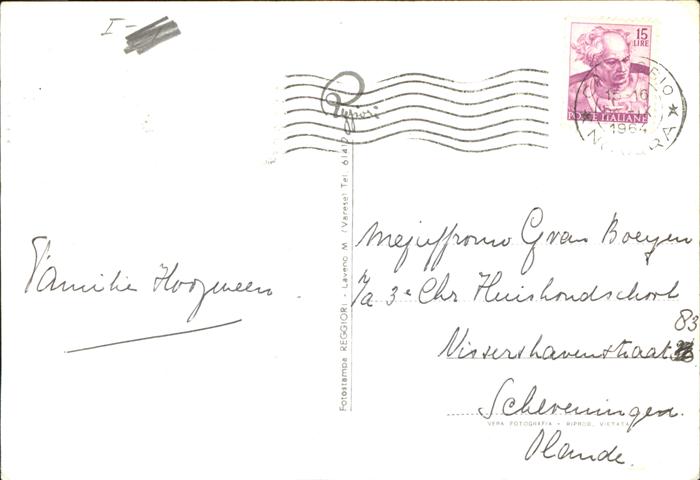 I -
15
LIRE
POSTE ITALIANE
15-16
1964
NOVARA
Fotostampa REGGIORI - Laveno M. (Varese) Tel. 61412
Familie Hoogeveen
Mejuffrouw G van Boeyen
7/a 3e Chr Huishoudschool
83
Vissershavenstraat
Scheveningen.
VERA FOTOGRAFIA - RIPROD. VIETATA
Olande.